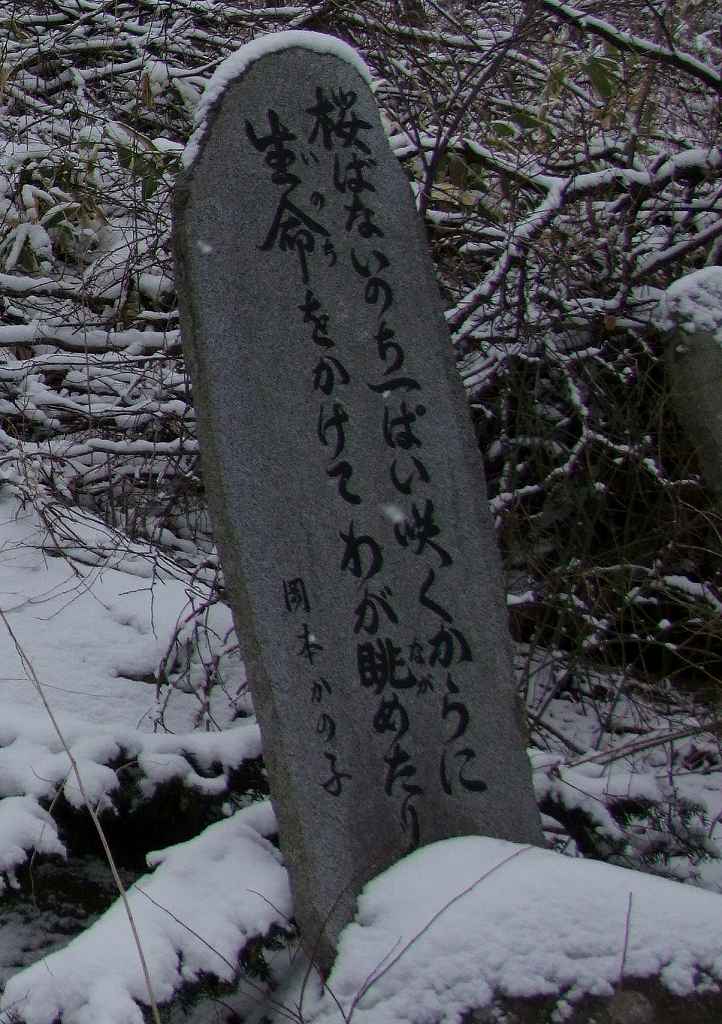 桜ばないのち一ぱい咲くからに
生命をかけてわが眺めたり
いのち
なが
岡本かの子